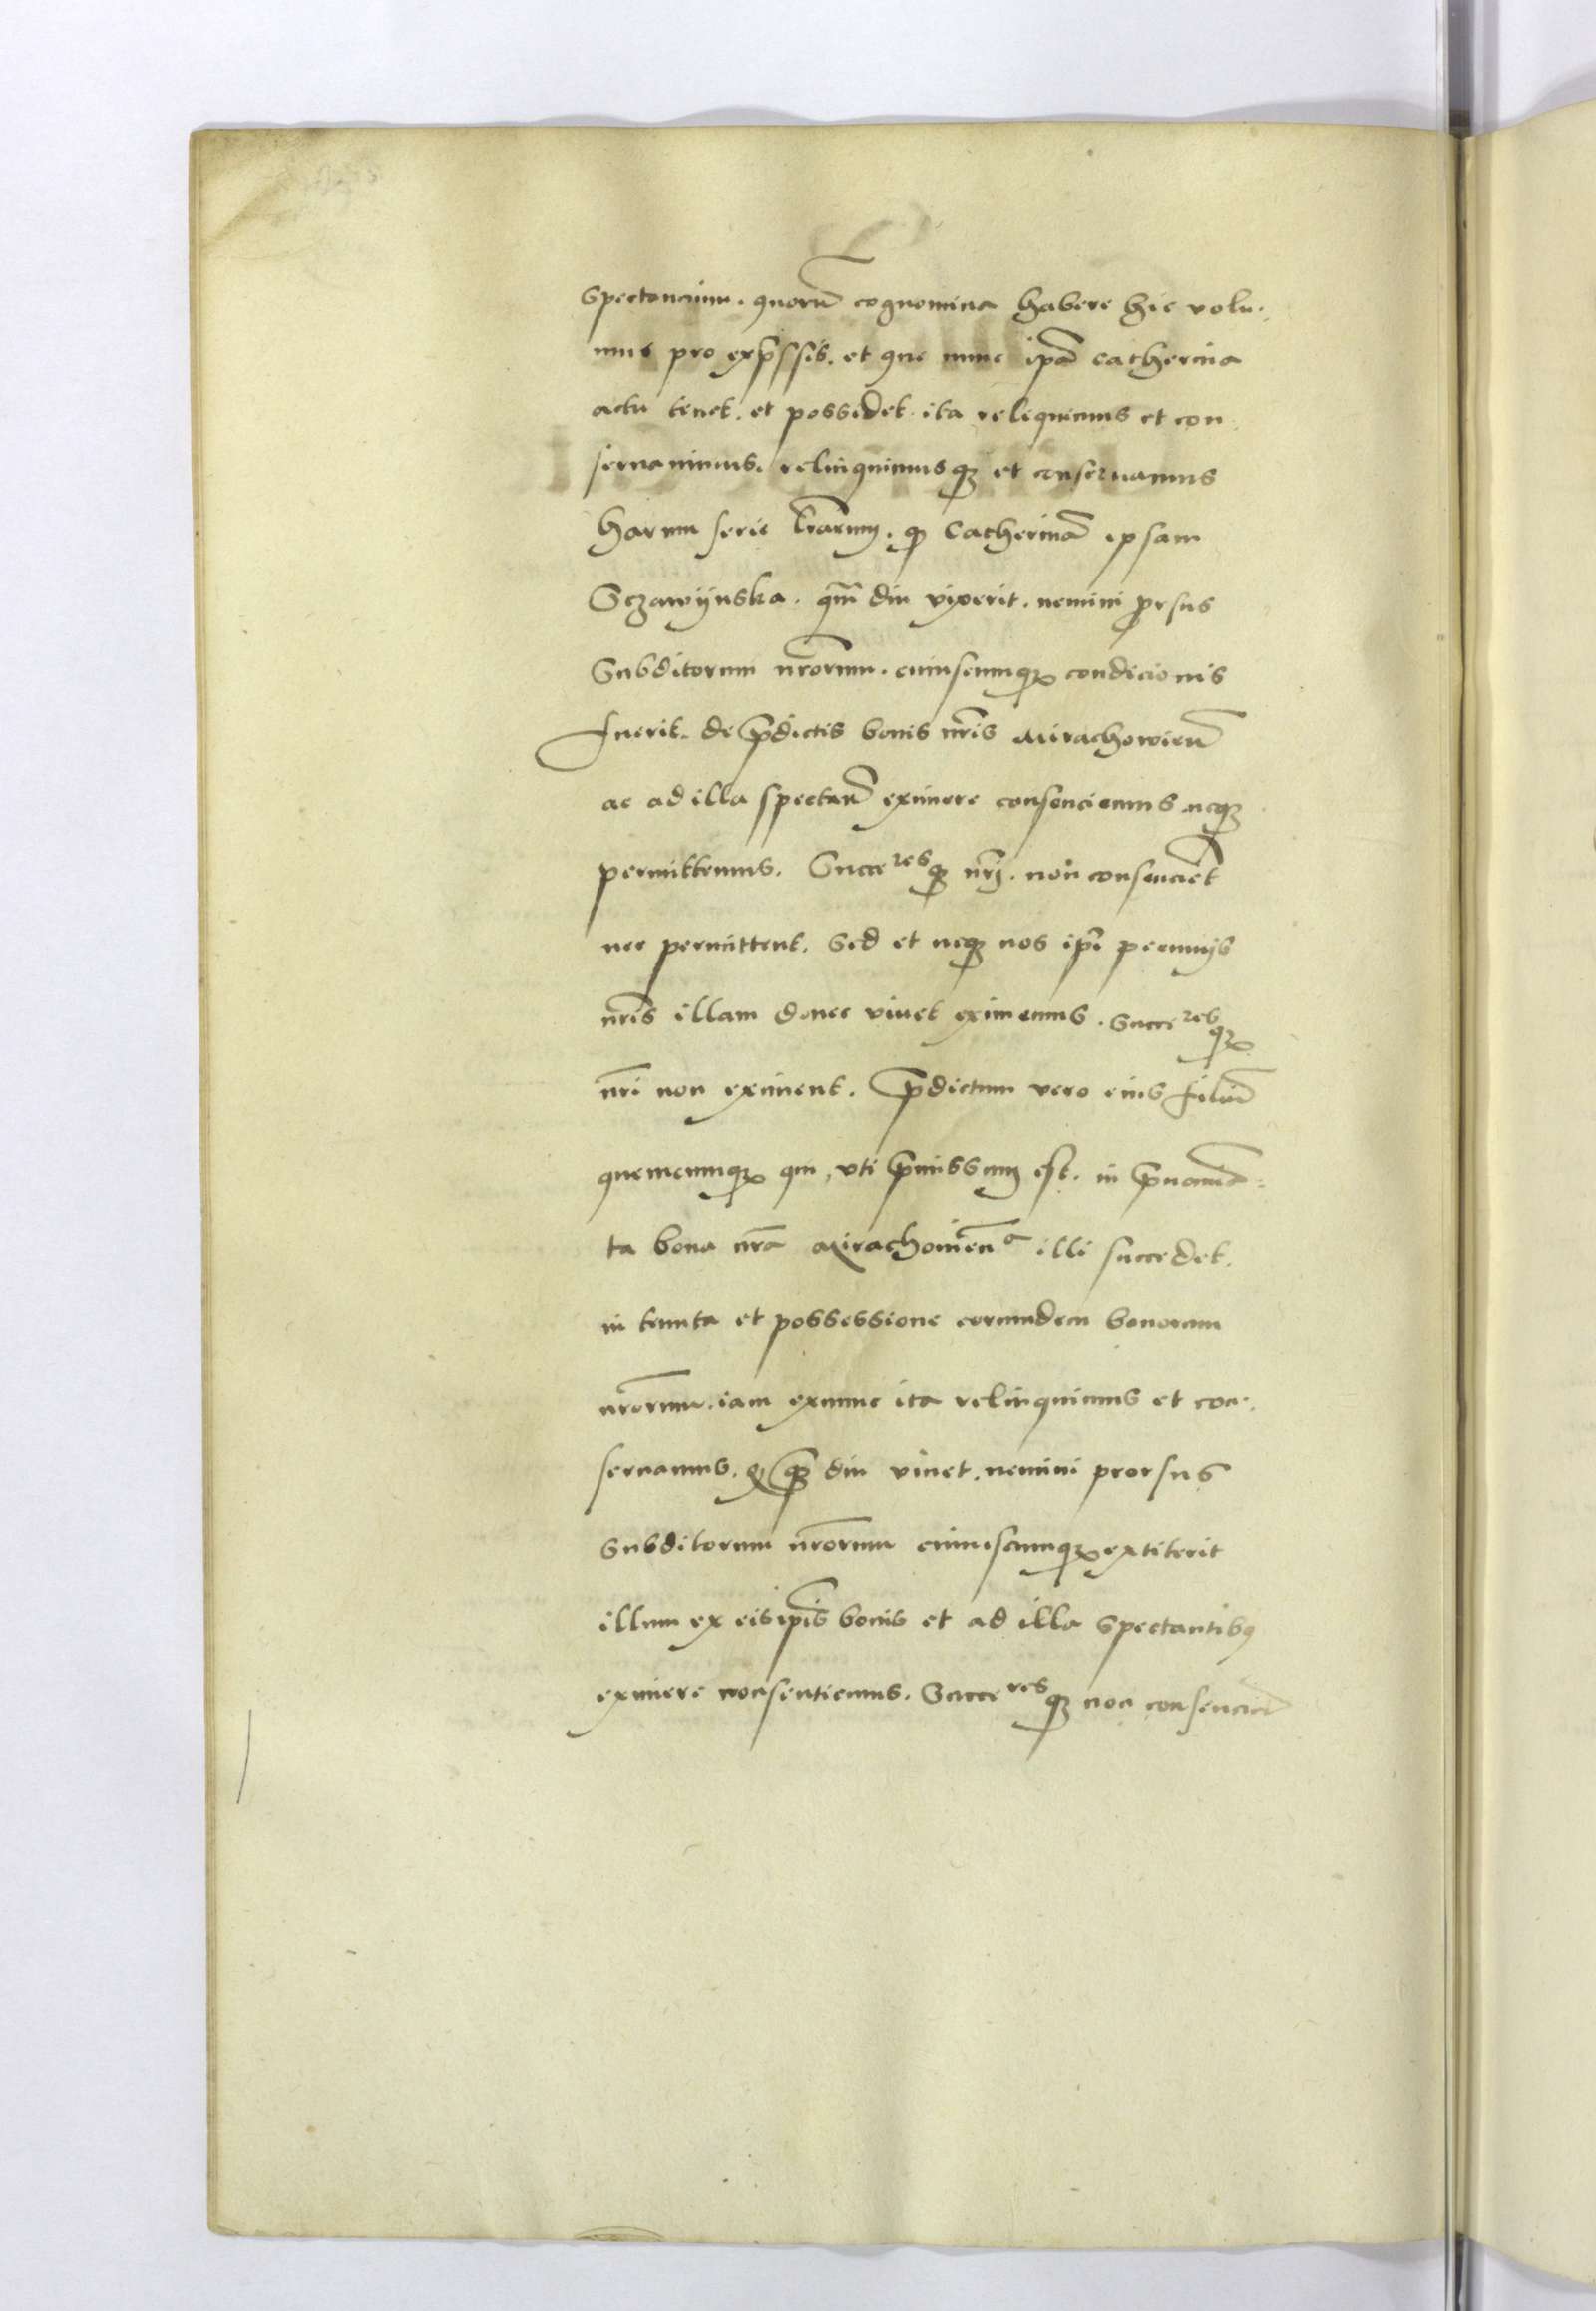 spectancium. quorũ cognomina habere hic volu-
mus pro exp̃ssis. et que nunc ip̃a Catherina
actu tenet. et possidet. ita reliquimus et con
seruauimus. relinquimusq; et conseruamus
harum serie l̃rarum. q Catherinã ipsam
Sczawijnska. q̃m diu vixerit. nemini prorsus
Subditorum nr̃orum. cuiuscunq; condicionis
fuerit. de p̃dictis bonis nr̃is Mirachowieñ
ac ad illa spectañ eximere consenciemus neq;
permittemus. Succe res q; nr̃j. non consencient
nec permittent. Sed et neq; nos ip̃i pecunijs
nr̃is illam donec viuet eximemus. Succe res q;
nr̃i non eximent. P̃dictum vero eius filiũ
quemcunq; qui, vti p̃missum est. in p̃nomina-
ta bona nr̃a Mirachouieñ a illi succedet.
in tenuta et possessione eorundem bonorum
nr̃orum. iam exnunc ita relinquimus et con-
seruamus. q q̃ diu viuet. nemini prorsus
Subditorum nr̃orum cuiuscunq; extiterit
illum ex eis ip̃is bonis et ad illa spectantibus
eximere consentiemus. Succe res q; non consencieñ